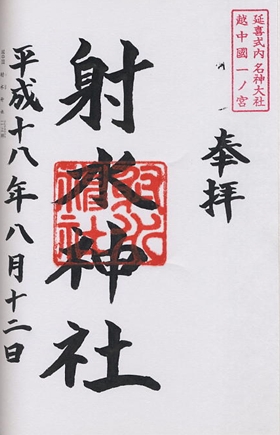 延喜式内 名神大社
越中國一ノ宮
奉拝
射水神社
射水神社
平成十八年八月十二日